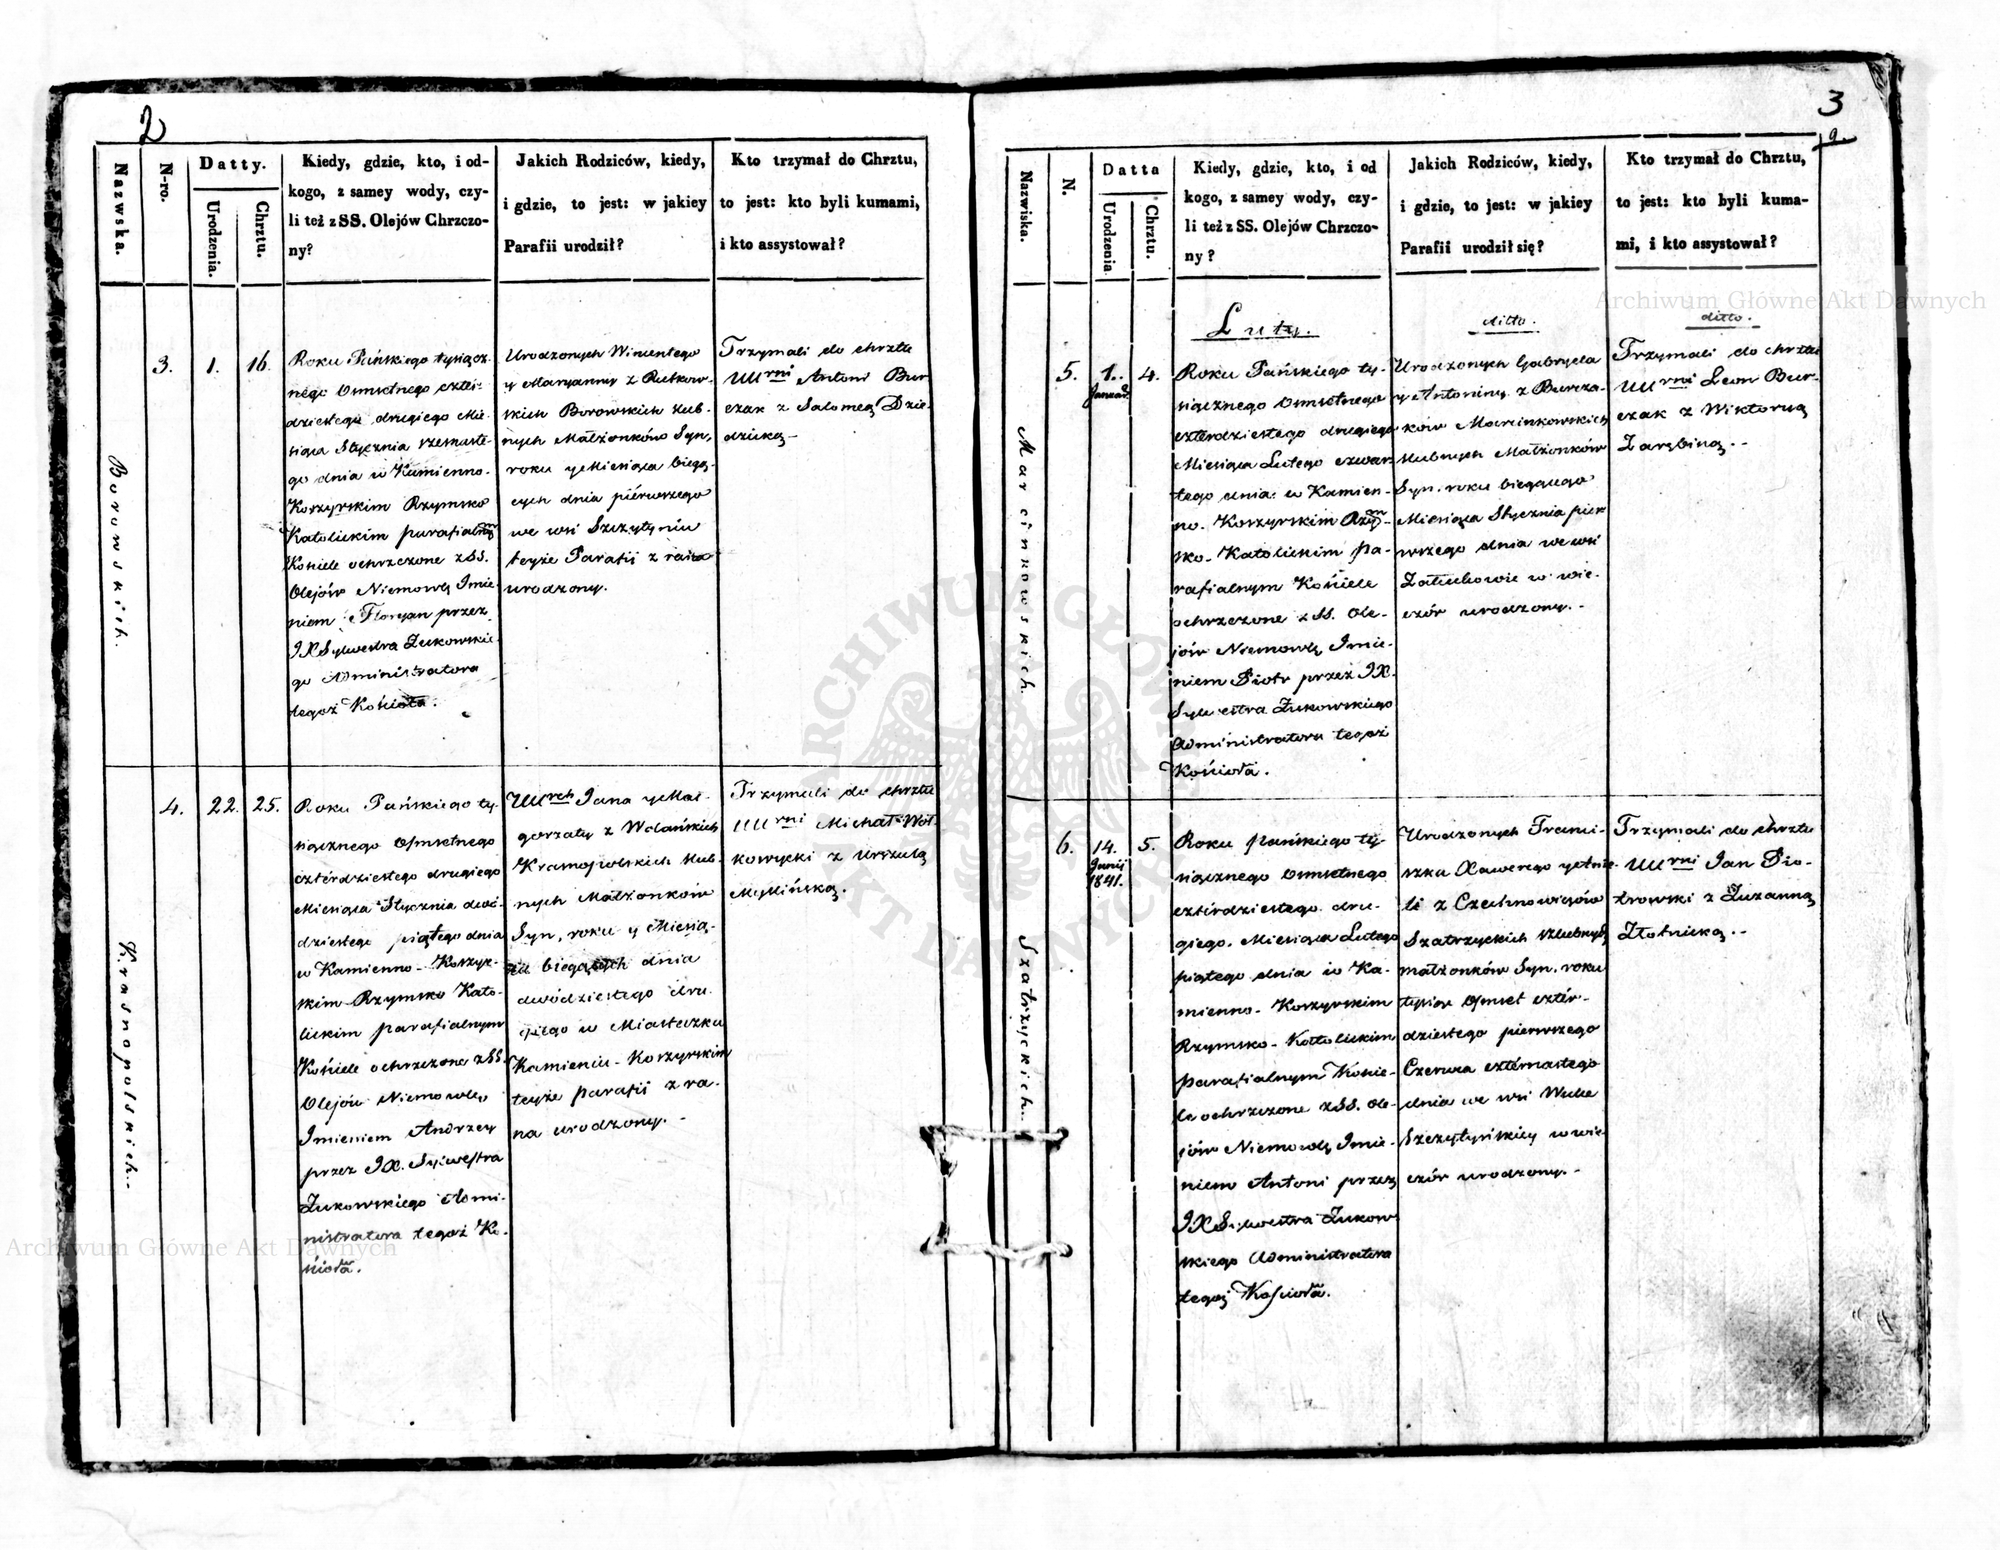 2
Nazwska.
N-ro.
Datty.
Urodzenia.
Chrztu.
Kiedy, gdzie, kto, i od-
kogo, z samey wody, czy-
li też z SS. Olejów Chrzczo-
ny?
Jakich Rodziców, kiedy,
i gdzie, to jest: w jakiey
Parafii urodził?
Kto trzymał do Chrztu,
to jest: kto byli kumami,
i kto assystował?
Borowskich.
3.
1.
16.
Roku Pańskiego tysiącz-
nego Osmsetnego czter-
dziestego drugiego Mie-
siąca Stycznia szesnaste-
go dnia w Kamienno-
Koszyrskim Rzymsko
Katolickim parafialnym
Kościele ochrzczone z SS.
Olejów Niemowlę Imie-
niem Floryan przez
JX Sylwestra Żukowskie-
go Administratora
tegoż Kościoła.
Urodzonych Wincentego
y Maryanny z Rutkow-
skich Borowskich slub-
nych Małżonków Syn,
roku y Miesiąca bieżą-
cych dnia piérwszego
we wsi Szczytyniu
teyże Parafii z rana
urodzony.
Trzymali do chrztu
UUrni Antoni Bur-
czak z Salomeą Dzie-
dzicką –
Krasnopolskich.-
4.
22.
25.
Roku Pańskiego ty-
siącznego Osmsetnego
cztérdziestego drugiego
Miesiąca Stycznia dwó-
dziestego piątego dnia
w Kamienno-Koszyr-
skim Rzymsko Kato-
lickim parafialnym
Kościele ochrzczone z SS.
Olejów Niemowlę,
Imieniem Andrzey
przez JX. Sylwestra
Żukowskiego Admi-
nistratora tegoż Ko-
ścioła.
UUrch Jana y Mał-
gorzaty z Wolańskich
Krasnopolskich slub-
nych Małżonków
Syn, roku y Miesią-
ca bieżących dnia
dwódziestego dru-
giego w Miasteczku
Kamieniu-Koszyrskim
teyże parafii z ra-
na urodzony. -
Trzymali do chrztu
UUrni Michał Woł-
kowycki z Urszulą
Myślińską.
3
9.
Nazwiska.
N.
Datta
Urodzenia
Chrztu.
Kiedy, gdzie, kto, i od
kogo, z samey wody, czy-
li też z SS. Olejów Chrzczo-
ny?
Jakich Rodziców, kiedy,
i gdzie, to jest: w jakiey
Parafii urodził się?
Kto trzymał do Chrztu,
to jest: kto byli kuma-
mi, i kto assystował?
Luty.
ditto.
ditto.
Marcinkowskich.
5.
1.
Januar.
4.
Roku Pańskiego ty-
siącznego Osmsetnego
czterdziestego drugiego
Miesiąca Lutego czwar-
tego dnia w Kamien-
no-Koszyrskim Rzym-
sko-Katolickim pa-
rafialnym Kościele
ochrzczone z SS. Ole-
jów Niemowlę Imie-
niem Piotr przez JX.
Sylwestra Żukowskiego
Administratora tegoż
Kościoła.
Urodzonych Gabryela
y Antoniny z Burcza-
ków Marcinkowskich
slubnych Małżonków
Syn. roku bieżącego
Miesiąca Stycznia pier-
wszego dnia we wsi
Załuchowie w wie-
czór urodzony. -
Trzymali do chrztu
UUrni Leon Bur-
czak z Wiktoryą
Zarębiną. -
Szatrzyckich.
6.
14.
Junij
1841.
5.
Roku pańskiego ty-
siącznego Osmsetnego
cztérdziestego dru-
giego. Miesiąca Lutego
piątego dnia w Ka-
mienno-Koszyrskim
Rzymsko-Katolickim
parafialnym Koście-
le ochrzczone z SS. Ole-
jów Niemowlę Imie-
niem Antoni przez
JX Sylwestra Żukow-
skiego Administratora
tegoż Kościoła.
Urodzonych Franci-
szka Xawerego y
z Czechnowiczów
Szatrzyckich szlubnych
małżonków Syn. roku
tysiąc Osmset cztér-
dziestego pierwszego
Czerwca cztérnastego
dnia we wsi
Szczytyńskiey w wie-
czór urodzony. -
Trzymali do chrztu
UUrni Jan Pio-
trowski z Zuzanną
Złotnicką. -
Archiwum Główne Akt Dawnych
Archiwum Główne Akt Dawnych
ARCHIWUM GŁÓWNE
AKT DAWNYCH